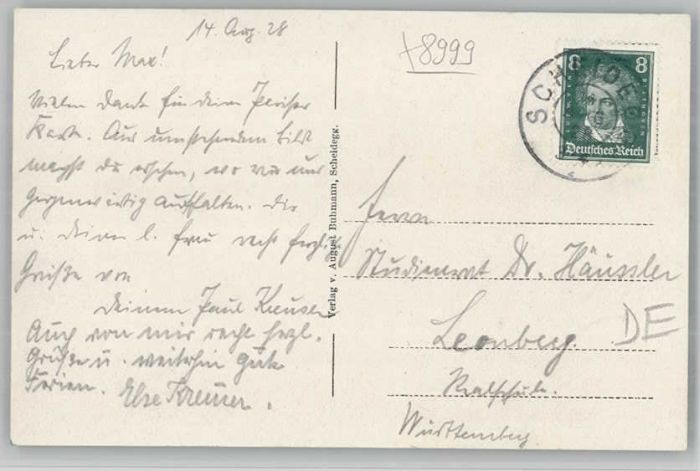 14. Aug. 28
Lieber Max!
Vielen Dank für deine Pariser
Karte. Aus umstehendem Bild
magst du ersehen, wo wir uns
gegenwärtig aufhalten. Dir
u. deiner l. Frau recht herzl.
Grüße von
deinem Paul
Auch von mir recht herzl.
Grüße u. weiterhin gute
Ferien. Else
Verlag v. August Buhmann, Scheidegg.
+8999
8 8
Deutsches Reich
SCHEIDEGG
Herrn
Studienrat Dr. Häussler
Leonberg.
DE
Realschule.
Württemberg